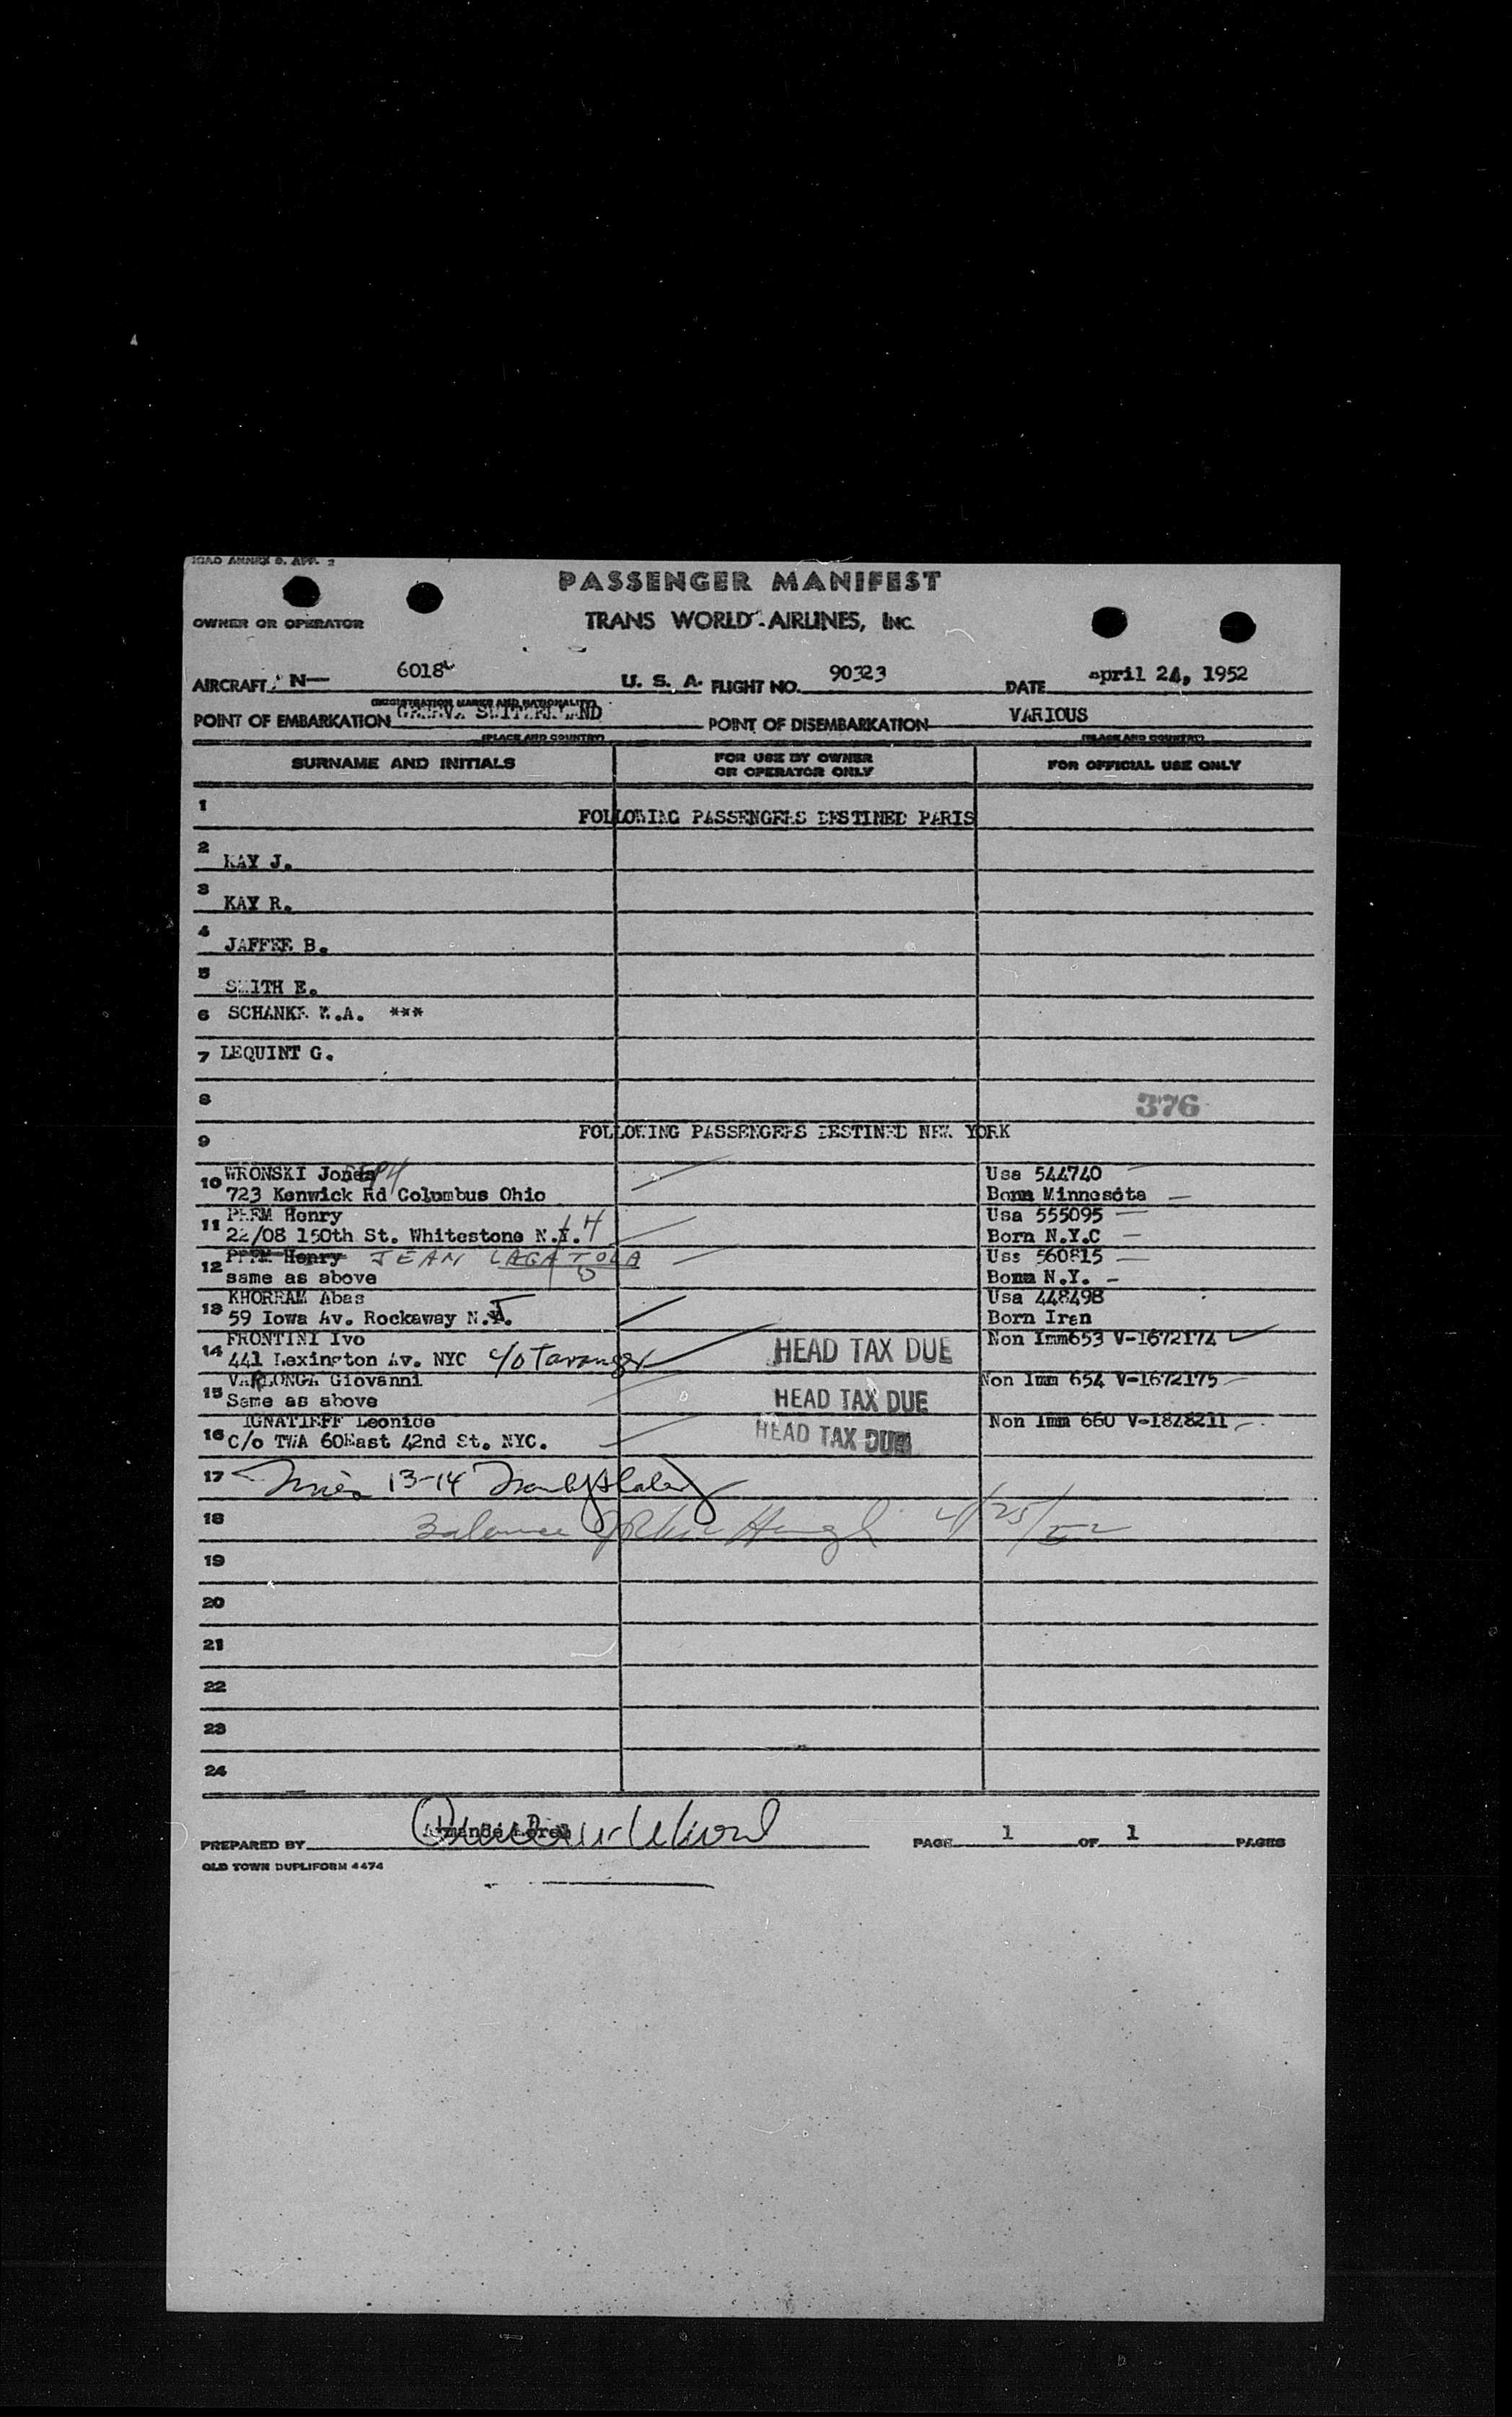 ICAO ANNEX 9, APP. 2
PASSENGER MANIFEST
OWNER OR OPERATOR
TRANS WORLD AIRLINES, INC.
AIRCRAFT N— 6018 U. S. A. FLIGHT NO. 90323 DATE april 24, 1952
(REGISTRATION MARKS AND NATIONALITY)
POINT OF EMBARKATION GENEVA SWITZERLAND POINT OF DISEMBARKATION VARIOUS
(PLACE AND COUNTRY) (PLACE AND COUNTRY)
SURNAME AND INITIALS FOR USE BY OWNER OR OPERATOR ONLY FOR OFFICIAL USE ONLY
1 FOLLOWING PASSENGERS DESTINED PARIS
2 KAY J.
3 KAY R.
4 JAFFEE B.
5 SMITH E.
6 SCHANKE .A. ***
7 LEQUINT G.
8 376
9 FOLLOWING PASSENGERS DESTINED NEW YORK
10 WRONSKI Usa 544740
723 Kenwick Rd Columbus Ohio Born Minnesota
11 PREM Henry Usa 555095
22/08 150th St. Whitestone N.Y. 14 Born N.Y.C
12 Henry JEAN LAGATOLA Uss 560815
same as above Born N.Y.
13 KHORRAM Abas Usa 448498
59 Iowa Av. Rockaway N. Born Iran
14 FRONTINI Ivo HEAD TAX DUE Non Imm653 V-1672174
441 Lexington Av. NYC c/o
15 VARLONGA Giovanni HEAD TAX DUE Non Imm 654 V-1672175
Same as above
16 IGNATIEFF Leonide HEAD TAX DUE Non Imm 660 V-1828211
C/o TWA 60East 42nd St. NYC.
17 13-14
18 Balance 4/25/52
19
20
21
22
23
24
PREPARED BY PAGE 1 OF 1 PAGES
OLD TOWN DUPLIFORM 4474